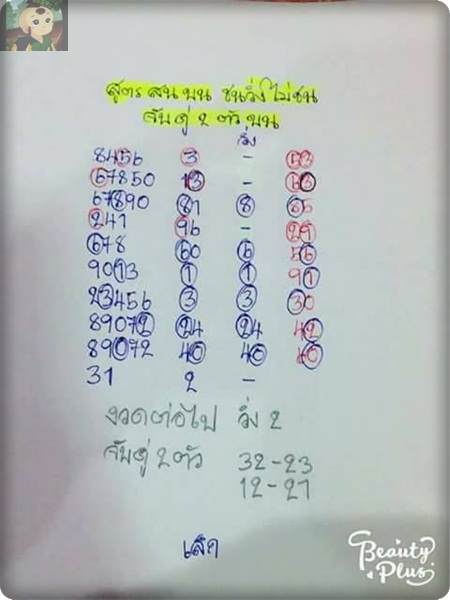 สูตร สน บน ชนวิ่งไม่ชน
จับคู่ 2 ตัว บน
วิ่ง
8456 3 - 53
67850 13 - 63
67890 81 8 85
241 96 - 29
678 60 6 56
9013 1 1 91
23456 3 3 30
89072 24 24 42
89072 40 40 60
31 2 -
งวดต่อไป วิ่ง 2
จับคู่ 2 ตัว 32-23
12-21
Beauty
Plus